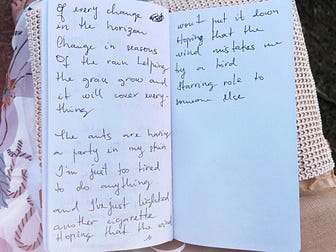 of every change
in the horizon
Change in seasons
Of the rain helping
the grass grow and
it will cover every-
thing
The ants are having
a party in my skin
I'm just too tired
to do anything
and I've just lighted
another cigarette
Hoping that the wind
won't put it down
Hoping that the
wind mistakes me
by a bird
Starring role to
someone else